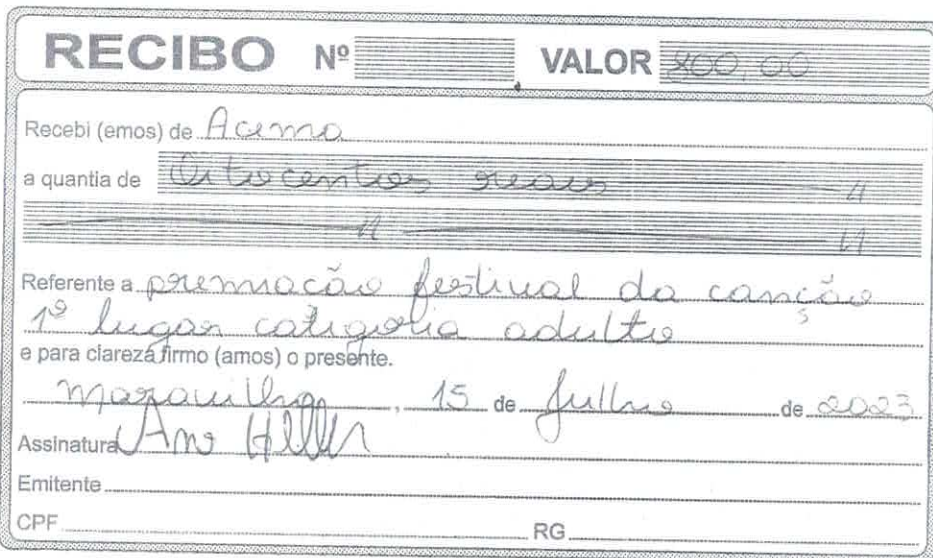 RECIBO Nº VALOR 800,00
Recebi (emos) de Acema
a quantia de Oitocentos reais
Referente a premiação festival da canção
1º lugar categoria adulto
e para clareza firmo (amos) o presente.
Maravilha, 15 de Julho de 2023
Assinatura Ana
Emitente
CPF RG